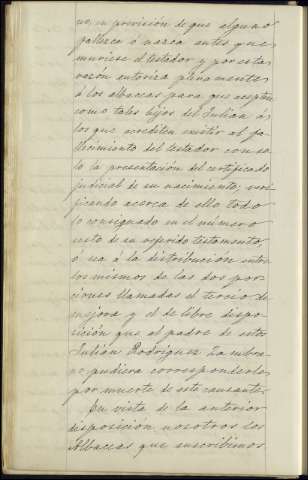 no, en prevision de que alguno
fallezca ó nazca antes que
muriese el testador y por esta
razón autoriza plenamente
á los albaceas para que acepten
como tales hijos del Julian á
los que acrediten existir al fa-
llecimiento del testador con so-
lo la presentación del certificado
judicial de su nacimiento, veri-
ficando acerca de ello todo
lo consignado en el número
sesto de su referido testamento
ó sea á la distribución entre
los mismos de las dos por-
ciones llamadas el tercio de
mejora y el de libre dispo-
sición que al padre de estos
Julián Rodriguez Zambra-
no, pudiera corresponderle
por muerte de este causante.
En vista de la anterior
disposición nosotros los
Albaceas que suscribimos